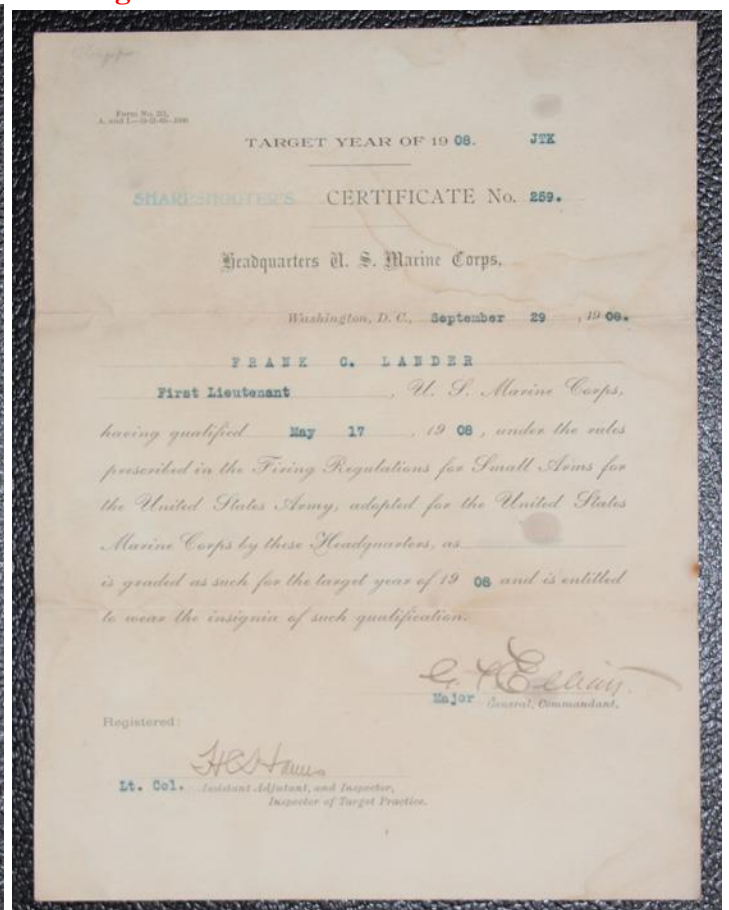 Form No. 211,
TARGET YEAR OF 19 08. JTK
SHARPSHOOTER'S CERTIFICATE No. 259.
Headquarters U. S. Marine Corps,
Washington, D. C., September 29 , 19 08.
FRANK C. LANDER
First Lieutenant , U. S. Marine Corps,
having qualified May 17 , 19 08 , under the rules
prescribed in the Firing Regulations for Small Arms for
the United States Army, adopted for the United States
Marine Corps by these Headquarters, as
is graded as such for the target year of 19 08 and is entitled
to wear the insignia of such qualification.
Major General, Commandant.
Registered:
Lt. Col. Assistant Adjutant, and Inspector,
Inspector of Target Practice.